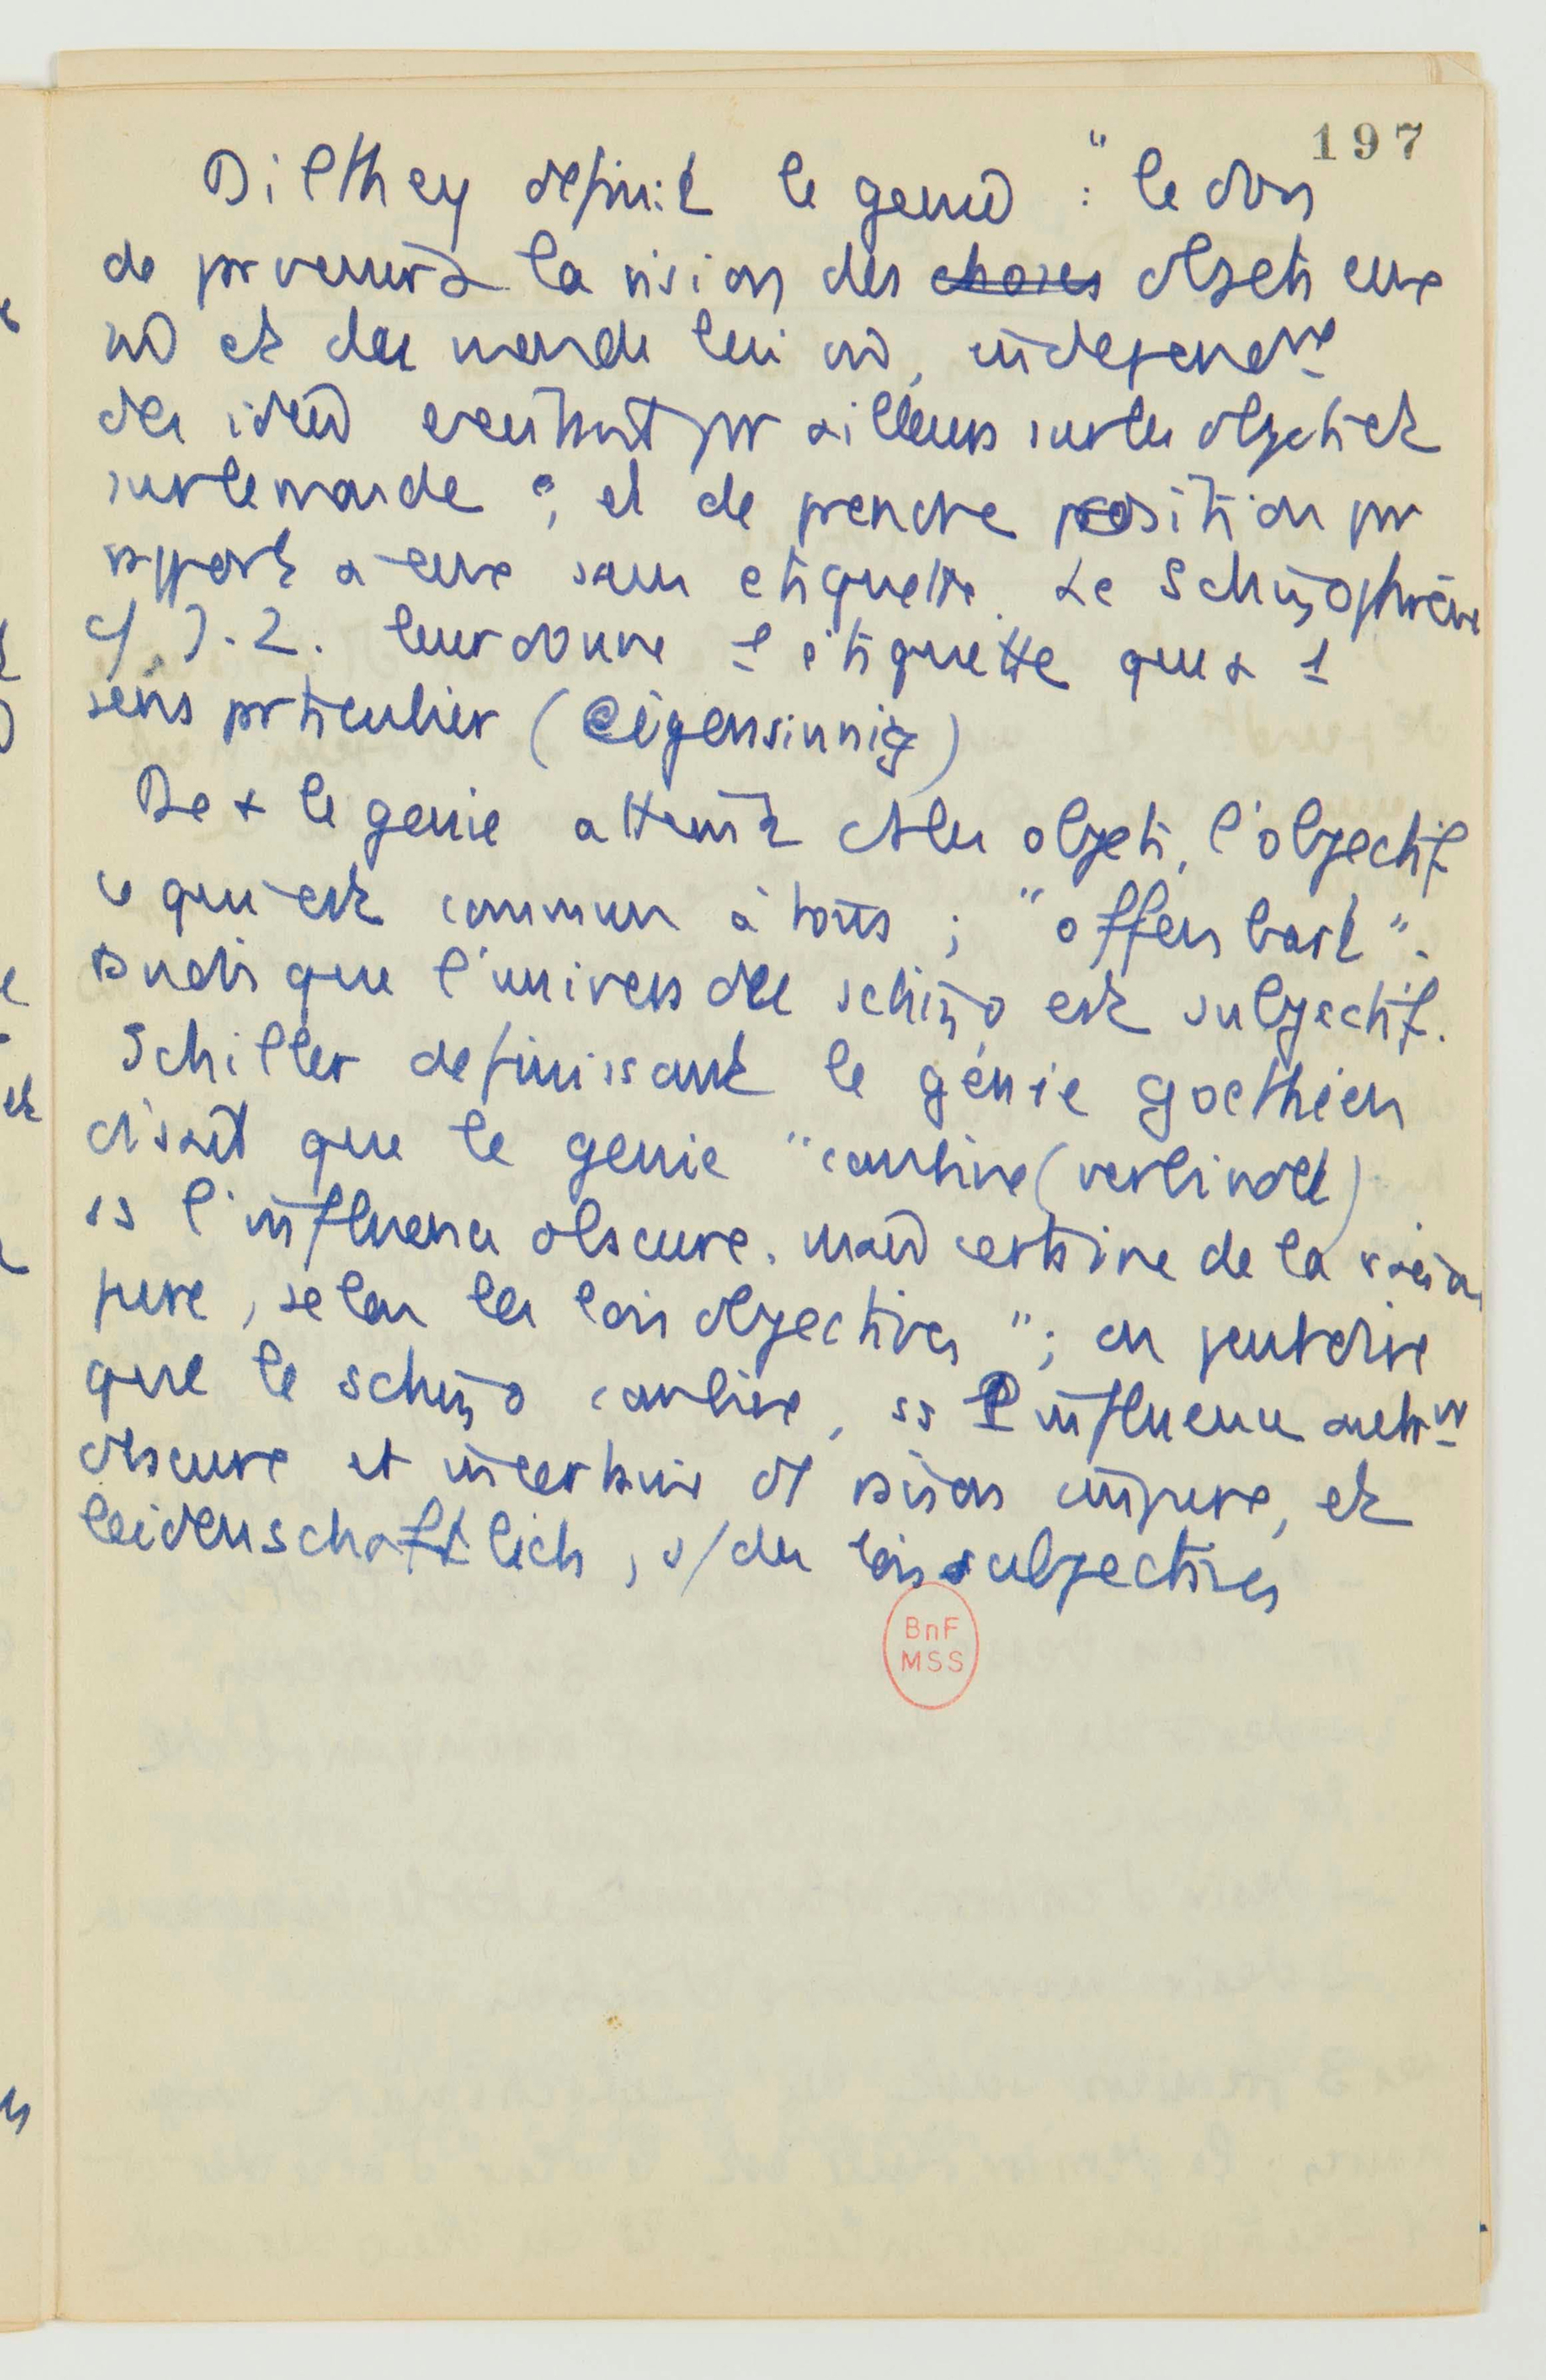 197
Dilthey definit le genie : "le don
de parvenir à la vision des choses objets eux
m et du monde lui m, independt
des idées existant par ailleurs sur les objets et
sur le monde ; et de prendre position par
rapport a eux sans etiquette. Le Schizophrène
cf J.Z. leur donne 1 étiquette qui a 1
sens particulier (eigensinnig)
De + le genie atteint ds les objets, l'objectif
ce qui est commun à tous ; "offenbart".
tandis que l'univers du schizo est subjectif.
Schiller definissant le génie goethien
disait que le genie "combine (verbindet)
ss l'influence obscure, mais certaine de la raison
pure, selon les lois objectives" ; on peut dire
que le schizo combine, ss l'influence
obscure et incertaine d raison impure, et
leidenschaftlich, s/ des lois subjectives
BnF
MSS